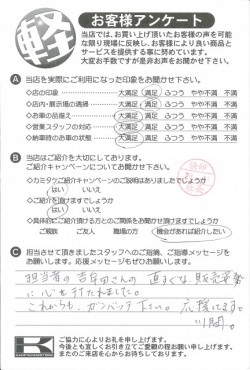 軽
お客様アンケート
当店では、お買い上げ頂いたお客様の声を可能
な限り現場に反映し、お客様により良い商品と
サービスを提供する事に努めています。
大変お手数ですが是非お声をお聞かせ下さい。
A 当店を実際にご利用になった印象をお聞かせ下さい。
◇店の印象 大満足 満足 ふつう やや不満 不満
◇店内・展示場の清掃 大満足 満足 ふつう やや不満 不満
◇お車の品揃え 大満足 満足 ふつう やや不満 不満
◇営業スタッフの対応 大満足 満足 ふつう やや不満 不満
◇納車時のお車の状態 大満足 満足 ふつう やや不満 不満
B 当店はご紹介を大切にしております。
ご紹介キャンペーンについてお聞かせ下さい。
◇カミタケご紹介キャンペーンのご説明はありましたでしょうか
はい いいえ
◇ご紹介を頂けますでしょうか
はい いいえ
◇具体的にご紹介頂ける方とのご関係をお聞かせ頂けますでしょうか
ご親族 ご友人 職場の方 機会があれば紹介したい
C 担当させて頂きましたスタッフへのご指摘、ご指導メッセージを
お願いします。応援メッセージもぜひお願いします。
担当者の吉年田さんの 直すぐな、販売営業
に心を打たれました。
これからも、ガンバッテ下さい。応援してます。
ご協力に心よりお礼を申し上げます。
今後とも宜しくお引き立てご愛顧の程お願い申し上げます。
またのご来店を心からお待ちしております。